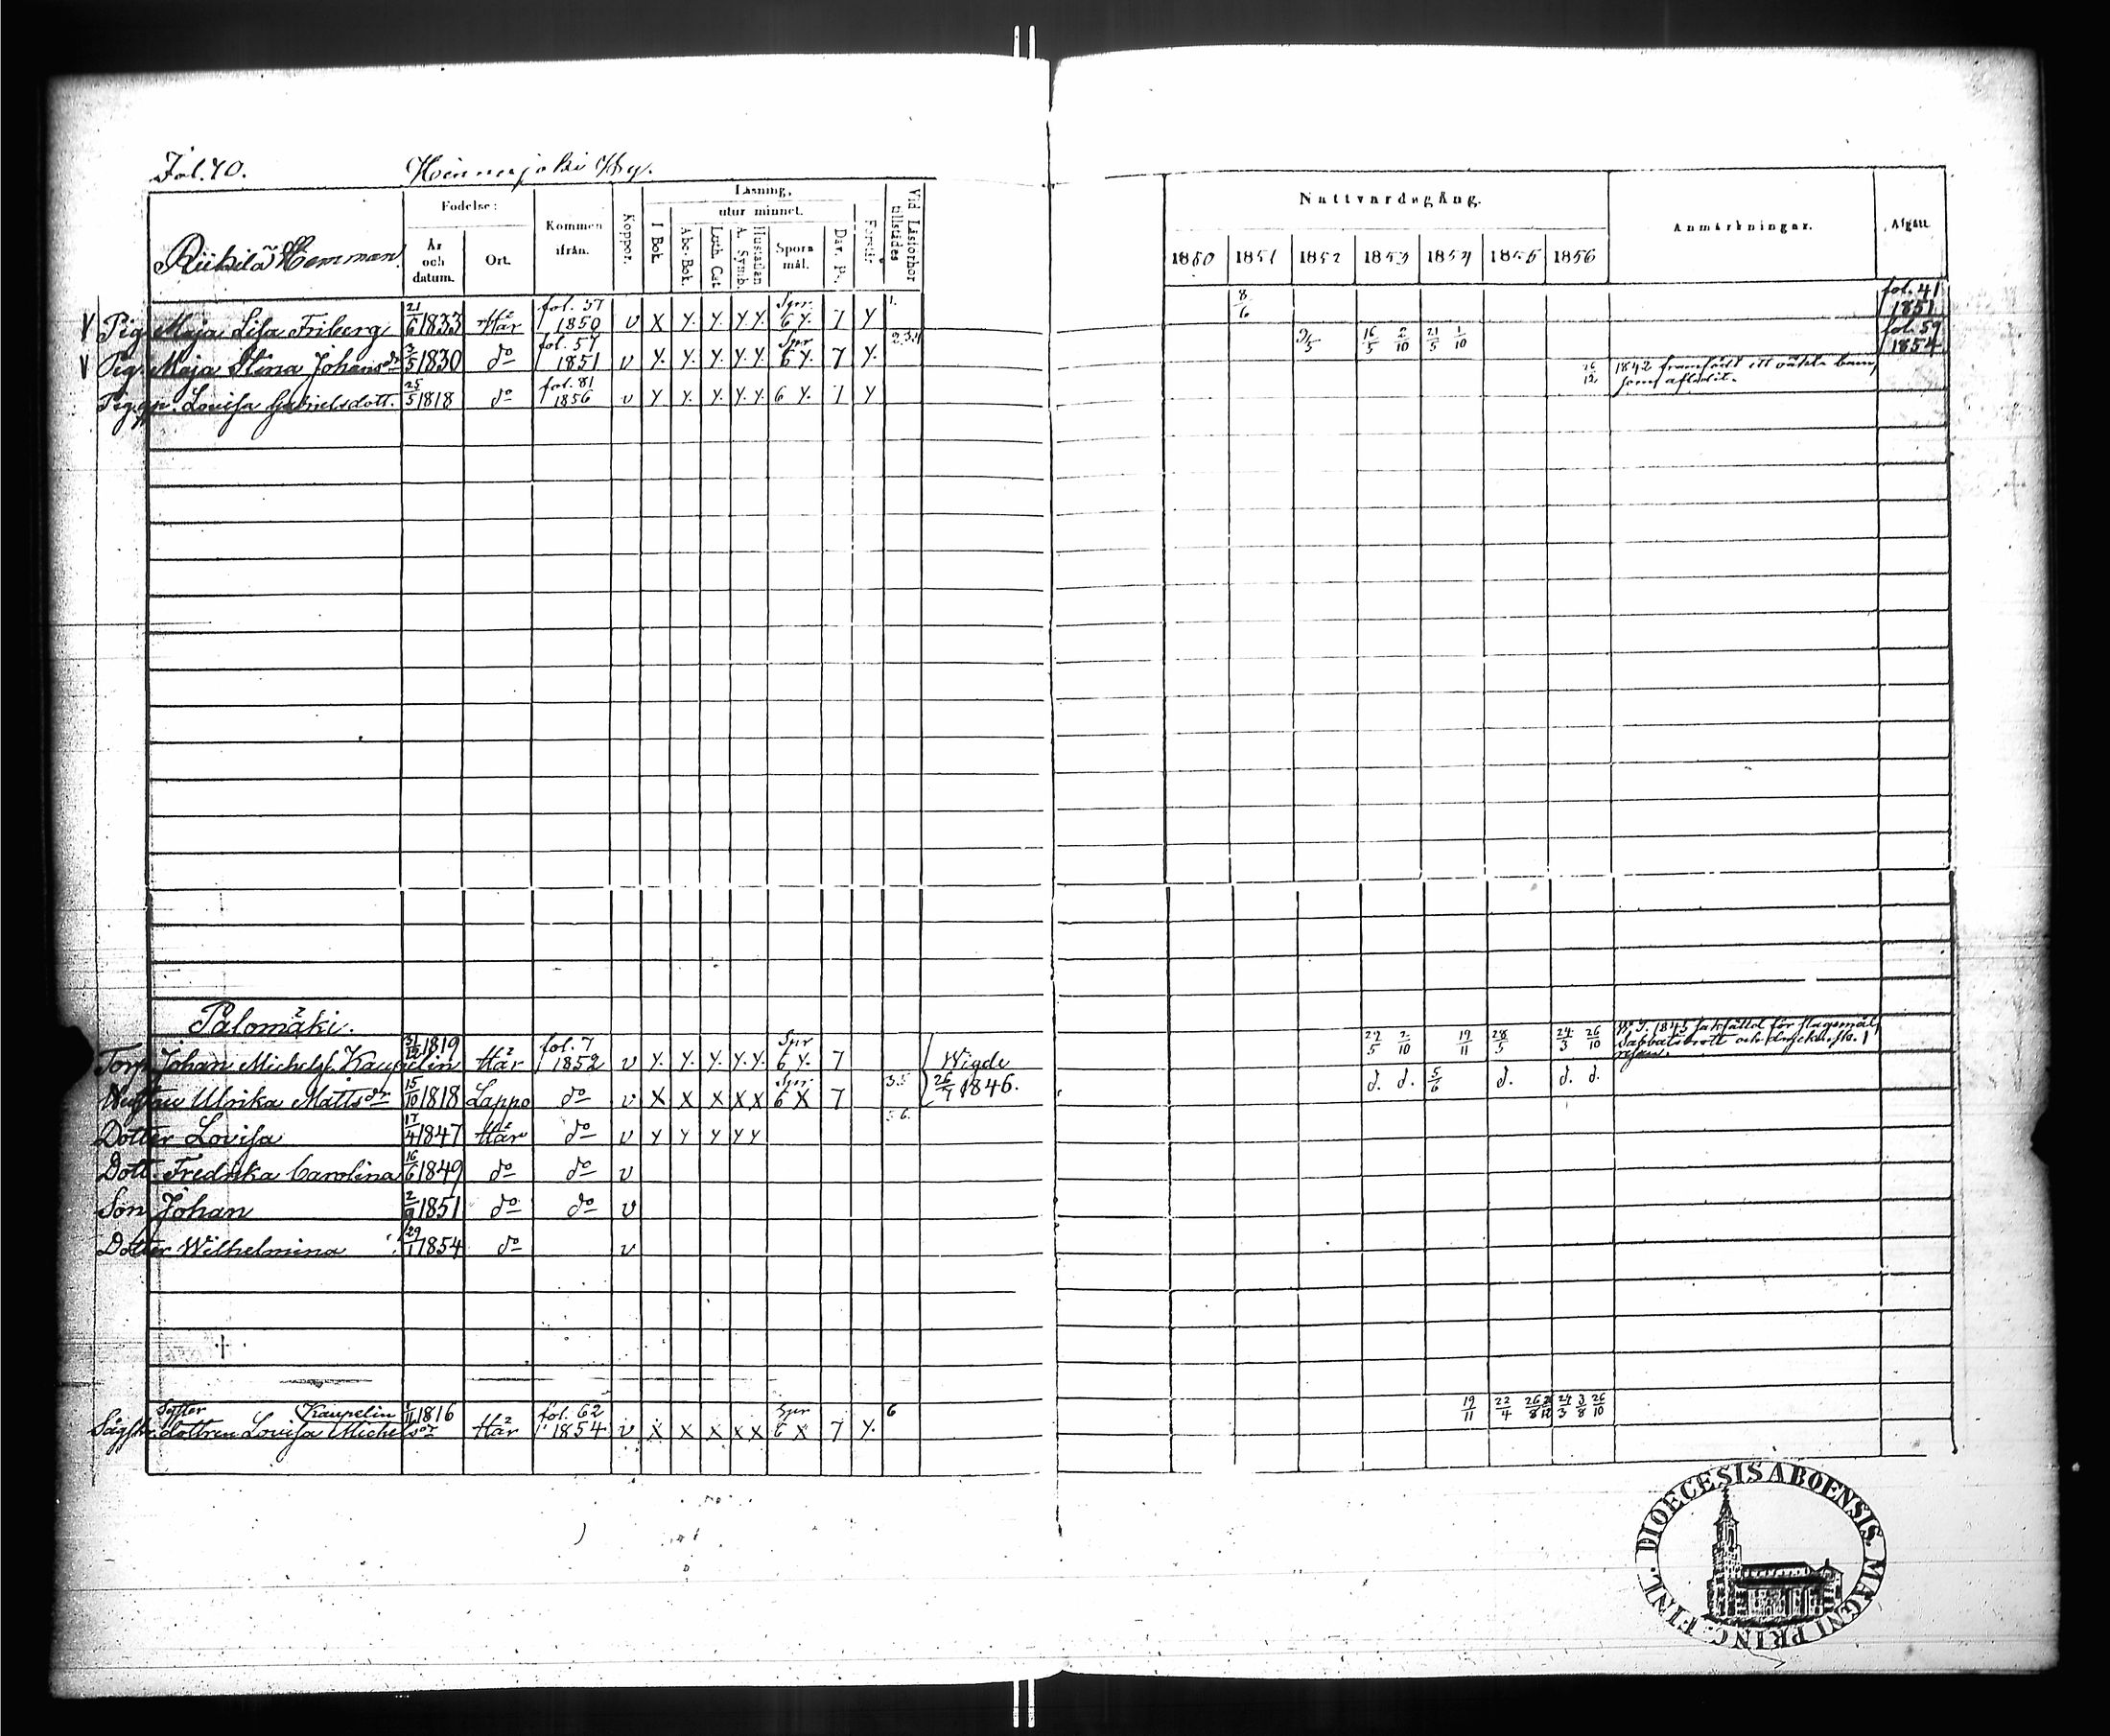 Fol. 70. Heinnerjoki By.
Riihilä Hemman.
Födelse:
År och datum.
Ort.
Kommen ifrån.
Koppor.
Läsning,
utur minnet.
I Bok.
Abc-Bok.
Luth. Cat.
Hustaflan A. Symb.
Spörsmål.
Dav. Ps.
Förstår.
Vid Läsförhör tillstädes
Nattvardsgång.
1850 1851 1852 1853 1854 1855 1856
Anmärkningar.
Afgått.
V Pig. Maja Lisa Friberg 21/6 1833 Här fol. 57 1850 v X Y. Y. Y. Y. Spr 6 Y. 7 Y 1. 8/6 fol. 41 1851
V Pig. Maja Stina Johansdr 3/5 1830 do fol. 57 1851 v Y. Y. Y. Y. Y. Spr 6 Y. 7 Y. 2.3.4 16/5 2/10 21/5 1/10 fol. 59 1854
Pig. Lovisa Gabrielsdott. 25/5 1818 do fol. 81 1856 v Y Y. Y. Y. Y. 6 Y. 7 Y 26/12 1842 framfödt ett oäkta barn, som aflidit.
Palomäki.
Torp. Johan Michelss. Kaupelin 31/12 1819 Här fol. 7 1852 v Y. Y. Y. Y. Y. Spr 6 Y. 7 Wigde 22/5 2/10 19/11 28/5 24/3 26/10 1845 sakfälld för slagsmål, Sabbatsbrott och
Hustru Ulrika Mattsdr 15/10 1818 Lappo do v X X X X X Spr 6 X 7 3.5 26/7 1846. d. d. 5/6 d. d. d.
Dotter Lovisa 17/4 1847 Här do v Y Y Y Y Y 5 6.
Dott. Fredrika Carolina 16/6 1849 do do v
Son Johan 2/9 1851 do do v
Dotter Wilhelmina 29/1 1854 do v
Kaupelin
dottren Lovisa Michelsdr 1/11 1816 Här fol. 62 1854 v X X X X X Spr 6 X 7 Y. 6 19/11 22/4 26/8 24/3 3/8 26/10
DIOECESIS ABOENSIS. MAGNI PRINC. FINL.